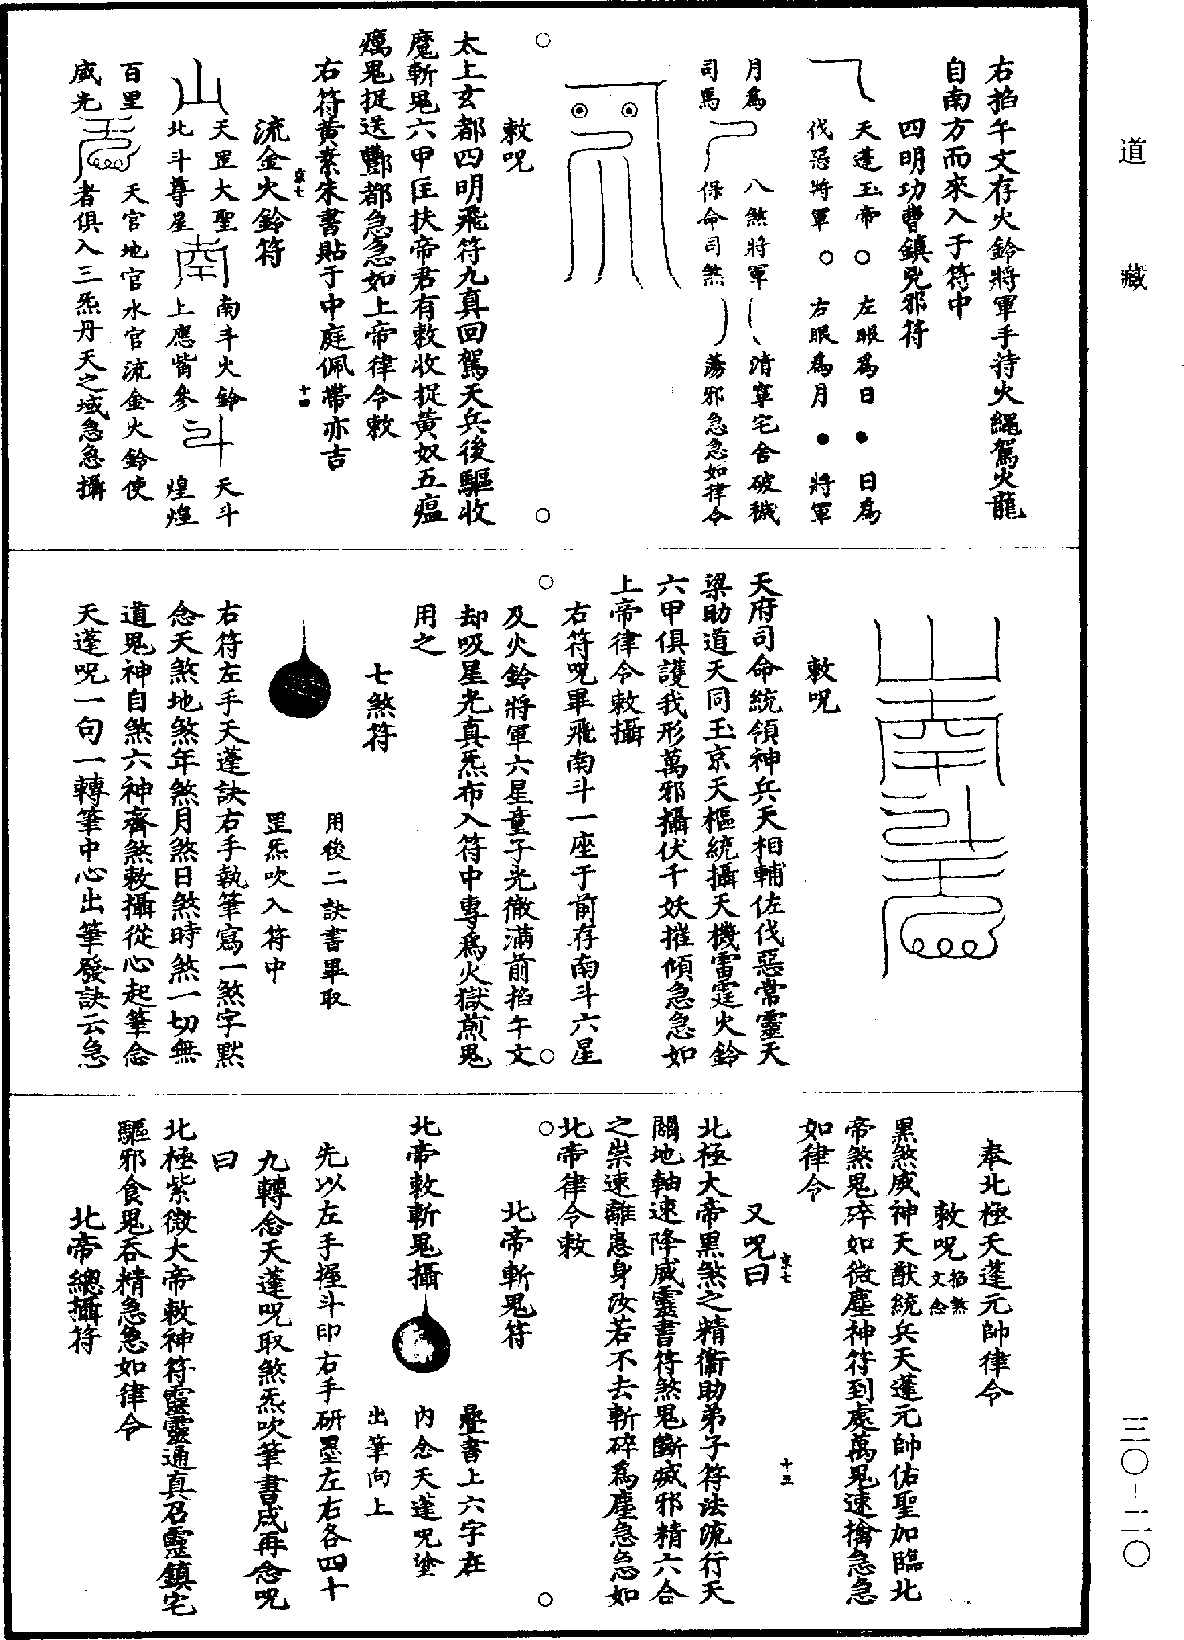 道藏
右掐午文存火鈴將軍手持火繩駕火龍
自南方而來入于符中
四明功曹鎮兇邪符
天蓬玉帝○左眼為日●日為
伐惡將軍○右眼為月●將軍
月為
司馬
八煞將軍
保命司煞
清寧宅舍破穢
蕩邪急急如律令
敕呪
太上玄都四明飛符九真回駕天兵後驅收
魔斬鬼六甲匡扶帝君有敕收捉黃奴五瘟
癘鬼捉送酆都急急如上帝律令敕
右符黃素朱書貼于中庭佩帶亦吉
十四
流金火鈴符
山
天罡大聖
北斗尊星
南
南斗火鈴
上應觜參
斗
天斗
煌煌
百里
天官地官水官流金火鈴使
威光
者俱入三炁丹天之域急急攝
敕呪
天府司命統領神兵天相輔佐伐惡常靈天
梁助道天同玉京天樞統攝天機雷霆火鈴
六甲俱護我形萬邪攝伏千妖摧傾急急如
上帝律令敕攝
右符呪畢飛南斗一座于前存南斗六星
及火鈴將軍六星童子光徹滿前掐午文
却吸星光真炁布入符中專為火獄煎鬼
用之
七煞符
用後二訣書畢取
罡炁吹入符中
右符左手天蓬訣右手執筆寫一煞字默
念天煞地煞年煞月煞日煞時煞一切無
道鬼神自煞六神齊煞敕攝從心起筆念
天蓬呪一句一轉筆中心出筆發訣云急
奉北極天蓬元帥律令
敕呪掐煞文念
黑煞威神天猷統兵天蓬元帥佑聖加臨北
帝煞鬼碎如微塵神符到處萬鬼速擒急急
如律令
十五
又呪曰
北極大帝黑煞之精衞助弟子符法流行天
關地軸速降威靈書符煞鬼斷滅邪精六合
之祟速離患身汝若不去斬碎為塵急急如
北帝律令敕
北帝斬鬼符
北帝敕斬鬼攝
疊書上六字在
內念天蓬呪塗
出筆向上
先以左手握斗印右手研墨左右各四十
九轉念天蓬呪取煞炁吹筆書成再念呪
曰
北極紫微大帝敕神符靈靈通真召靈鎮宅
驅邪食鬼吞精急急如律令
北帝總攝符
三〇-二〇